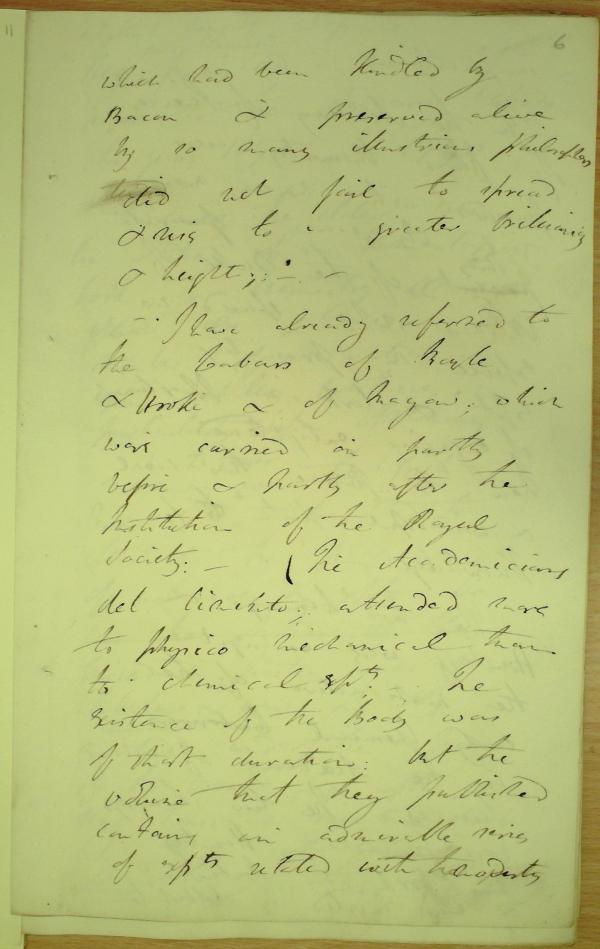 6
which had been kindled by
Bacon & preserved alive
by so many illustrious philosophers
did not fail to spread
& rise to a greater brilliancy
& height;
I have already referred to
the Labors of Boyle
& Hooke & of Mayow; which
were carried on partly
before & partly after the
Institution of the Royal
Society: — (The Academicians
del Cimento; attended more
to physico mechanical than
to chemical expts. The
existence of the Body was
of short duration: but the
volume that they published
contains an admirable series
of expts related with